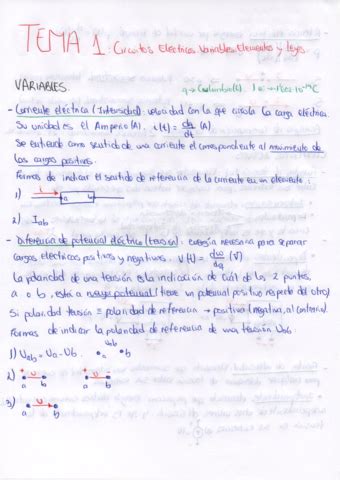 TEMA 1. Circuitos Eléctricos. Variables, Elementos y leyes.
VARIABLES.
q → Coulombio (C).
- Corriente eléctrica (Intensidad): velocidad con la que circula la carga eléctrica.
Su unidad es el Amperio (A). i(t) = dq/dt (A)
Se entiende como sentido de una corriente el correspondiente al movimiento de
las cargas positivas.
Formas de indicar el sentido de referencia de la corriente en un elemento:
1) i a b
2) Iab
- Diferencia de potencial eléctrico (tensión): energía necesaria para separar
cargas eléctricas positivas y negativas. V(t) = dω/dq (V)
La polaridad de una tensión es la indicación de cuál de los 2 puntos,
a o b, está a mayor potencial (tiene un potencial positivo respecto del otro)
Si polaridad tensión = polaridad de referencia → positiva (negativa, al contrario)
Formas de indicar la polaridad de referencia de una tensión Uab:
1) Uab = Ua - Ub. a uab b
2) + u - a b + u - a b
3) u a b